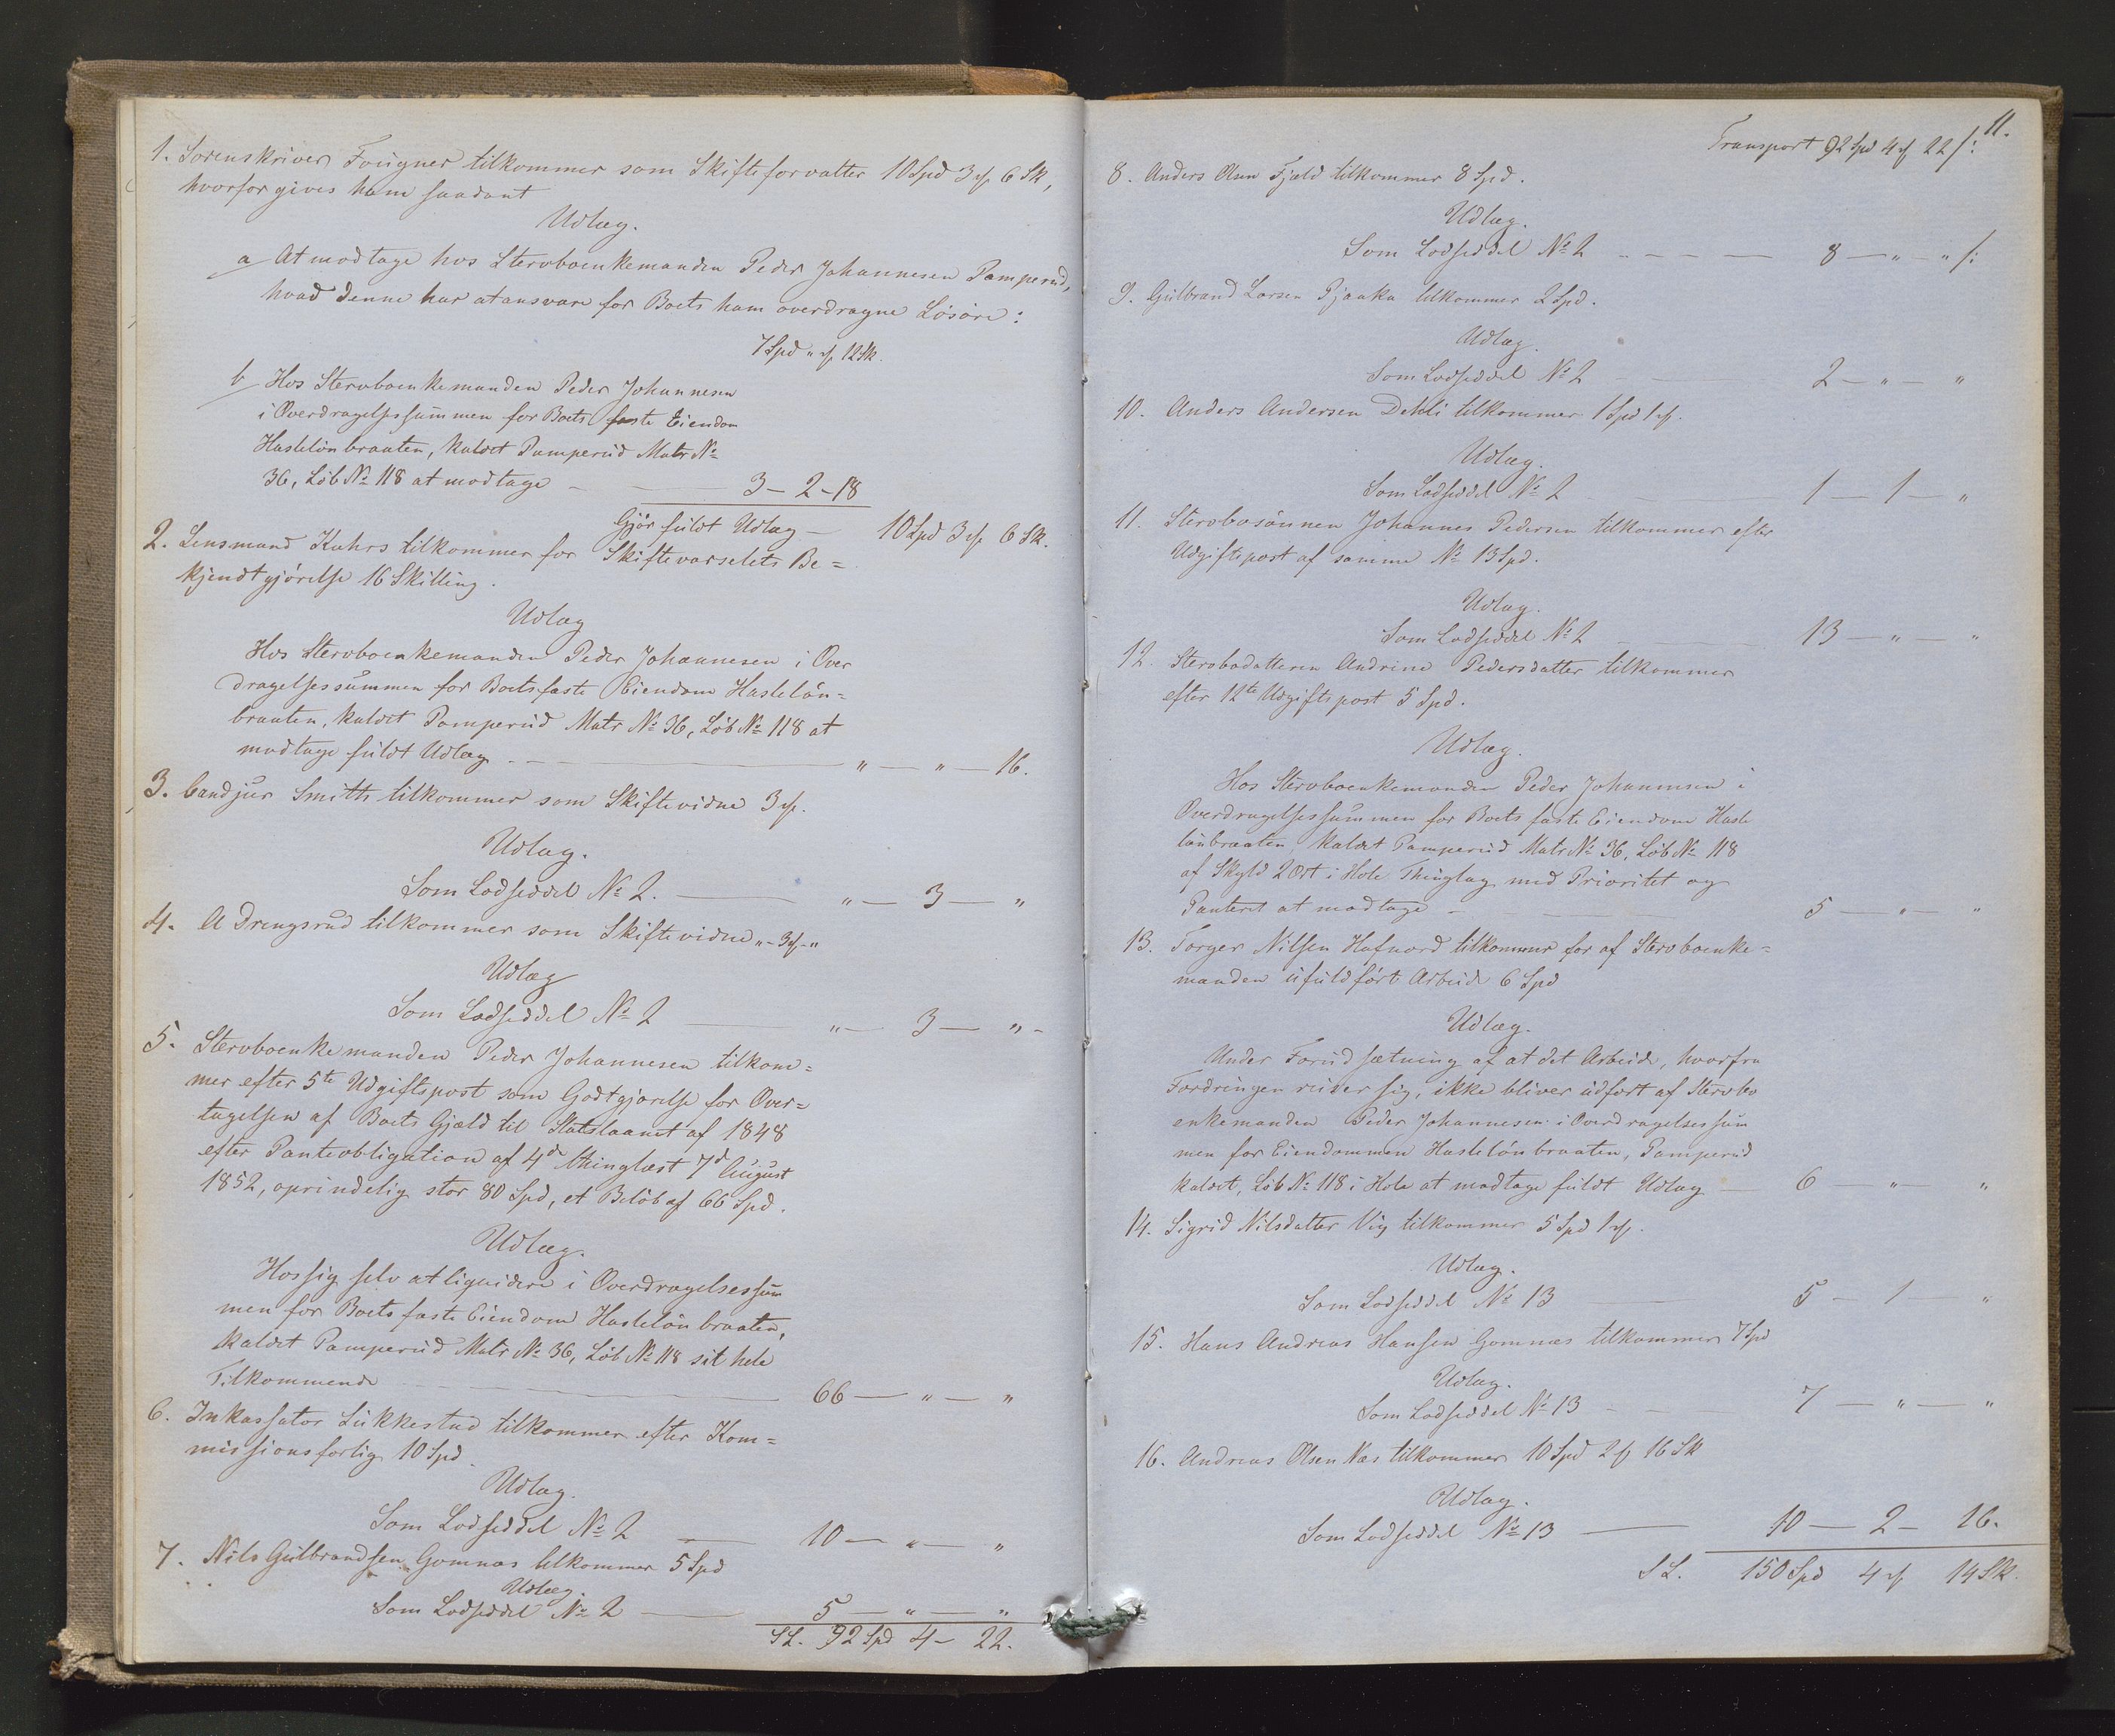 1. Sorenskriver Fougner tilkommer som Skifteforvalter 10 Spd 3 ℳ 6 Sk,
hvorfor gives ham saadant
Udlæg.
a At modtage hos Stervboenkemanden Peder Johannesen Pamperud,
hvad denne har at ansvare for Boets ham overdragne Løsøre:
7 Spd " ℳ 12 Sk.
b Hos Stervboenkemanden Peder Johannesen
i Overdragelsessummen for Boets faste Eiendom
Haslelønbraaten, kaldet Pamperud Matr №
36, Løb № 118 at modtage — 3 – 2 – 18
Gjør fuldt Udlæg — 10 Spd 3 ℳ 6 Sk.
2. Lensmand Kuhrs tilkommer for Skiftevarselets Be=
kjendtgjørelse 16 Skilling.
Udlæg
Hos Stervboenkemanden Peder Johannesen i Over
dragelsessummen for Boets faste Eiendom Hasleløn=
braaten, kaldet Pamperud Matr № 36, Løb № 118 at
modtage fuldt Udlæg — " — " — 16.
3. Cand jur Smith tilkommer som Skiftevidne 3 ℳ.
Udlæg.
Som Lodseddel № 2. — " — 3 — "
4. A Drengsrud tilkommer som Skiftevidne " – 3 ℳ – "
Udlæg
Som Lodseddel № 2 — " — 3 — " –
5. Stervboenkemanden Peder Johannesen tilkom=
mer efter 5te Udgiftspost som Godtgjørelse for Over=
tagelsen af Boets Gjæld til Statslaanet af 1848
efter Panteobligation af 4de thinglæst 7de August
1852, oprindelig stor 80 Spd, et Beløb af 66 Spd.
Udlæg.
Hos sig selv at liquidere i Overdragelsessum
men for Boets faste Eiendom Haslelønbraaten,
kaldet Pamperud Matr № 36, Løb № 118 sit hele
Tilkommende — 66 — " — "
6. Inkassator Lükkestad tilkommer efter Kom=
missionsforlig 10 Spd.
Udlæg.
Som Lodseddel № 2 — 10 — " — "
7. Nils Gulbrandsen Gomnæs tilkommer 5 Spd
Udlæg.
Som Lodseddel № 2 — 5 — " — "
SL. 92 Spd 4 – 22.
11.
Transport 92 Spd 4 ℳ 22 /:
8. Anders Olsen Fjeld tilkommer 8 Spd.
Udlæg.
Som Lodseddel № 2 — 8 — " — " /:
9. Gulbrand Larsen Pjaaka tilkommer 2 Spd.
Udlæg.
Som Lodseddel № 2 — 2 — " — "
10. Anders Andersen Dehli tilkommer 1 Spd 1 ℳ.
Udlæg.
Som Lodseddel № 2 — 1 — 1 — "
11. Stervbosønnen Johannes Pedersen tilkommer efter
Udgiftspost af samme № 13 Spd.
Udlæg.
Som Lodseddel № 2 — 13 — " — "
12. Stervbodatteren Andrine Pedersdatter tilkommer
efter 12te Udgiftspost 5 Spd.
Udlæg.
Hos Stervboenkemanden Peder Johannesen i
Overdragelsessummen for Boets faste Eiendom Hasle
lønbraaten, kaldet Pamperud Matr № 36, Løb № 118
af Skyld 2 Ort i Hole Thinglag med Prioritet og
Panteret at modtage — 5 — " — "
13. Torger Nilsen Hafnord tilkommer for af Stervboenke=
manden ufuldført Arbeide 6 Spd
Udlæg.
Under Forudsætning af at det Arbeide, hvorfra
Fordringen reiser sig, ikke bliver udført af Stervbo
enkemanden Peder Johannesen i Overdragelsessum
men for Eiendommen Haslelønbraaten, Pamperud
kaldet, Løb № 118 i Hole at modtage fuldt Udlæg — 6 — " — "
14. Sigrid Nilsdatter Vig tilkommer 5 Spd 1 ℳ.
Udlæg.
Som Lodseddel № 13 — 5 — 1 — "
15. Hans Andreas Hansen Gomnæs tilkommer 7 Spd
Udlæg.
Som Lodseddel № 13 — 7 — " — "
16. Andreas Olsen Næs tilkommer 10 Spd 2 ℳ 16 Sk
Udlæg.
Som Lodseddel № 13 — 10 — 2 — 16.
SL. 150 Spd 4 ℳ 14 Sk.